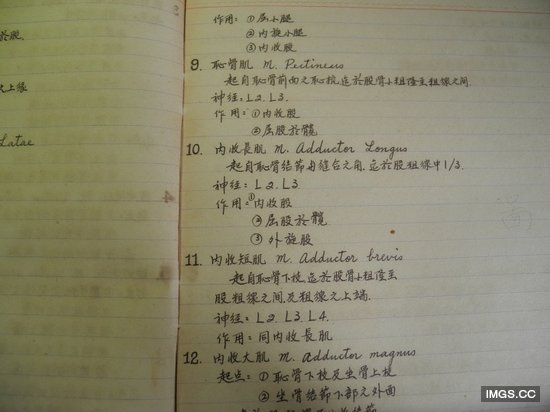 於股.
大上緣
Latae
作用: ①屈小腿
②内旋小腿
③内收股
9. 恥骨肌 M. Pectineus
起自恥骨前面之恥梳,迄於股骨小粗隆至粗線之间.
神径: L2. L3.
作用: ①内收股
②屈股於髖
10. 内收長肌 M. Adductor Longus
起自恥骨结節与縫合之角.迄於股粗線中1/3.
神径: L2. L3.
作用: ①内收股
②屈股於髖
③外旋股
11. 内收短肌 M. Adductor brevis
起自恥骨下枝,迄於股骨小粗隆至
股粗線之间,及粗線之上端.
神径: L2. L3. L4.
作用: 同内收長肌
12. 内收大肌 M. Adductor magnus
起点: ①恥骨下枝及坐骨上枝
②坐骨结節下部之外面
IMGS.CC